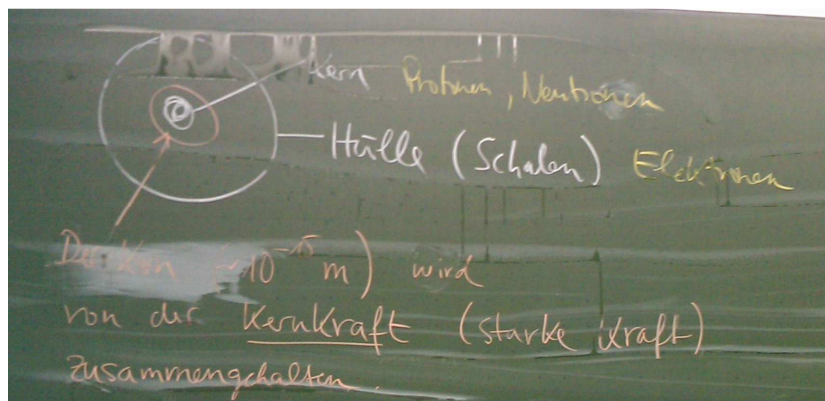 Kern Protonen, Neutronen
Hülle (Schalen) Elektronen
Der Kern (~10⁻¹⁵ m) wird
von der Kernkraft (starke Kraft)
zusammengehalten.